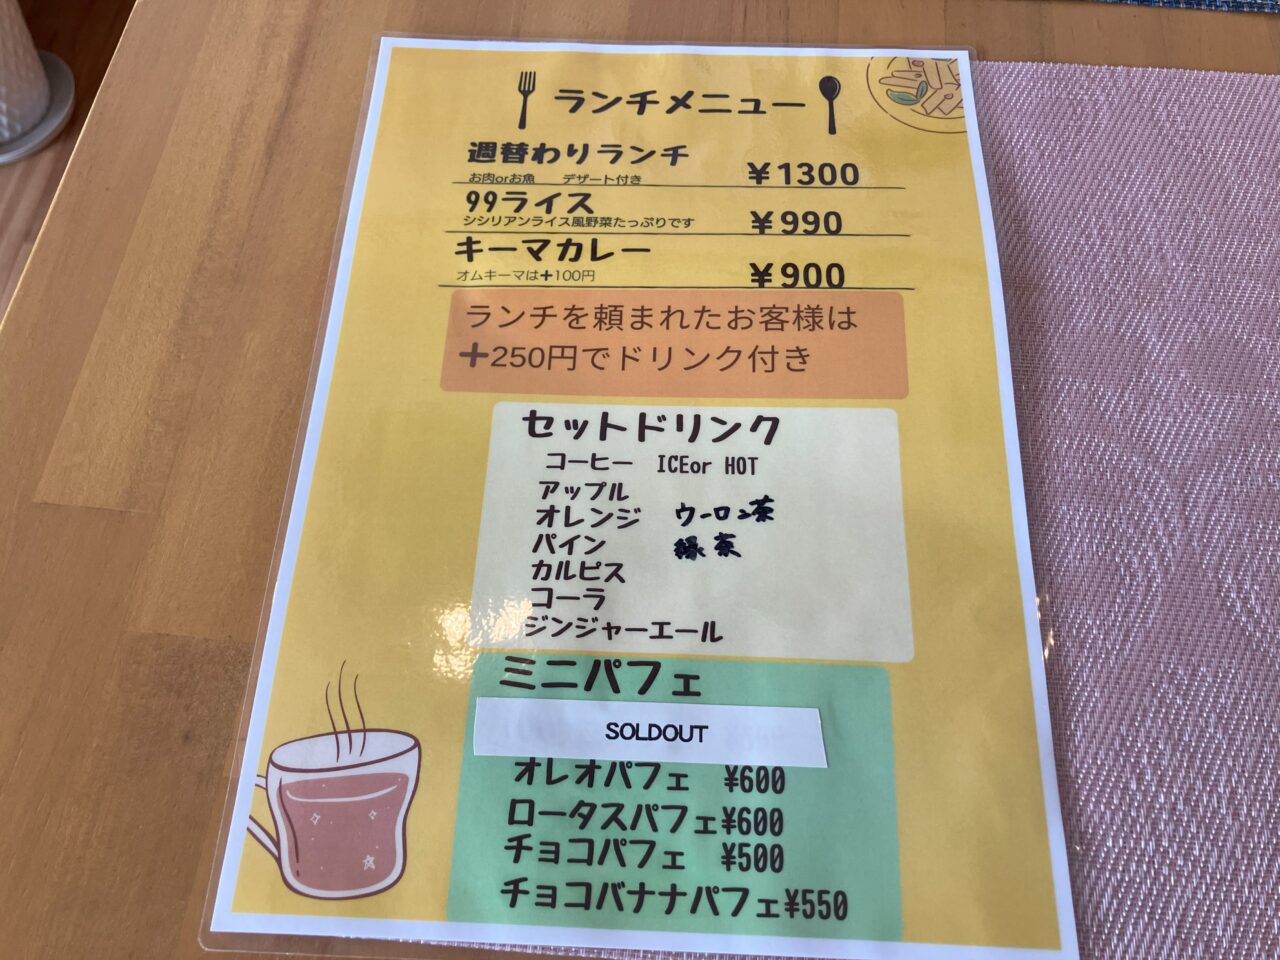 ランチメニュー
週替わりランチ ￥1300
お肉orお魚 デザート付き
99ライス ￥990
シシリアンライス風野菜たっぷりです
キーマカレー ￥900
オムキーマは+100円
ランチを頼まれたお客様は
+250円でドリンク付き
セットドリンク
コーヒー ICEor HOT
アップル
オレンジ ウーロン茶
パイン 緑茶
カルピス
コーラ
ジンジャーエール
ミニパフェ
SOLDOUT
オレオパフェ ¥600
ロータスパフェ¥600
チョコパフェ ¥500
チョコバナナパフェ¥550